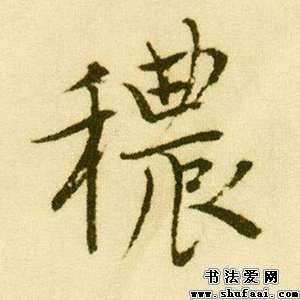 穠
书法爱网
www.shufaai.com